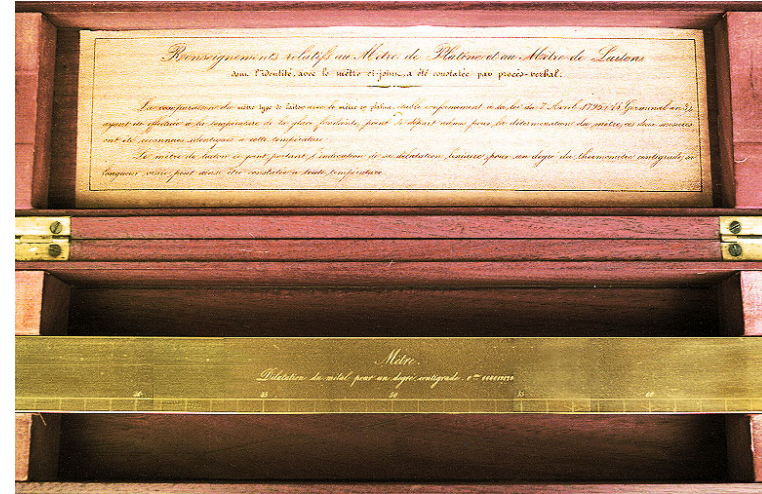 Renseignements relatifs au Mètre de Platine et au Mètre de Laiton
dont l'identité, avec le mètre ci-joint, a été constatée par procès-verbal.
La comparaison du mètre type de laiton avec le mètre en platine, établie conformément à la loi du 7 Avril 1795 (18 Germinal an
ayant été effectuée à la température de la glace fondante, point de départ admis pour la détermination du mètre, ces deux mesures
ont été reconnues identiques à cette température
Le mètre de laiton ci-joint portant l'indication de sa dilatation linéaire pour un degré du thermomètre centigrade, sa
longueur vraie peut ainsi être constatée à toute température
Mètre.
Dilatation du métal pour un degré centigrade. 0
45 50 55 60